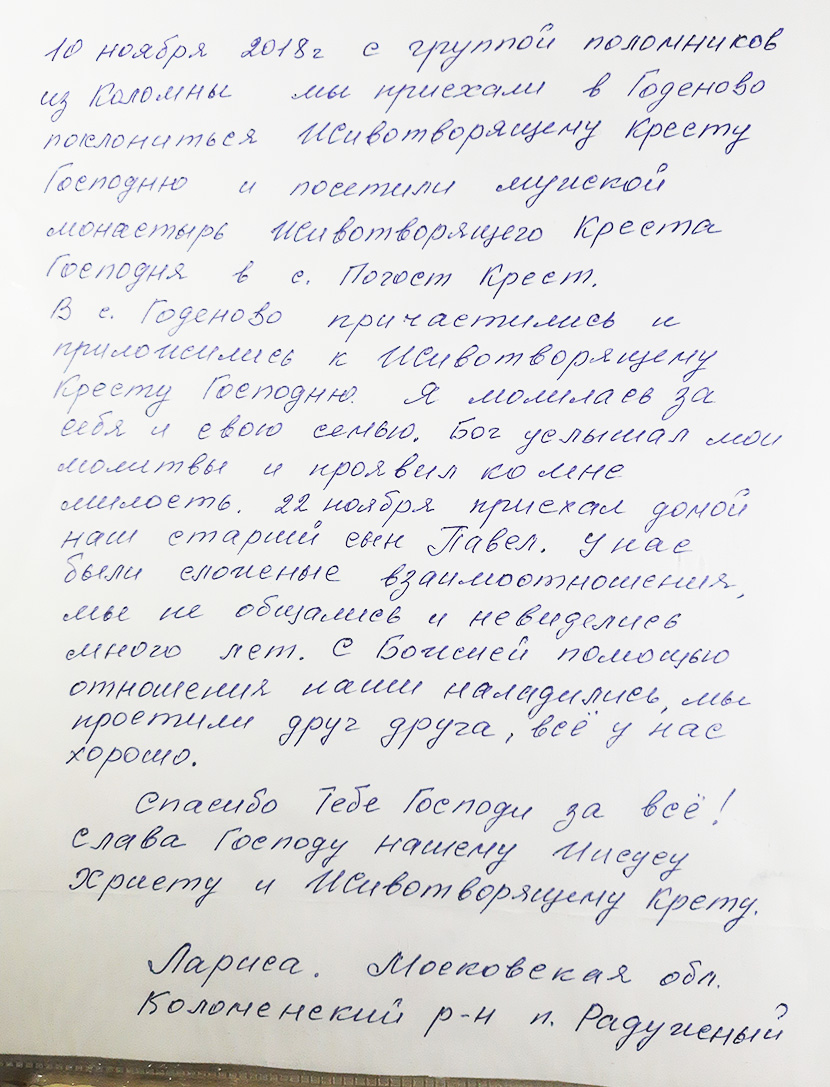 10 ноября 2018г с группой поломников
из Коломны мы приехали в Годеново
поклониться Животворящему Кресту
Господню и посетили мужской
монастырь Животворящего Креста
Господня в с. Погост Крест.
В с. Годеново причастились и
приложились к Животворящему
Кресту Господню. Я молилась за
себя и свою семью. Бог услышал мои
молитвы и проявил ко мне
милость. 22 ноября приехал домой
наш старший сын Павел. У нас
были сложеные взаимоотношения,
мы не общались и невиделись
много лет. С Божией помощью
отношения наши наладились, мы
простили друг друга, всё у нас
хорошо.
Спасибо Тебе Господи за всё!
Слава Господу нашему Иисусу
Христу и Животворящему Крету.
Лариса. Московская обл.
Коломенский р-н п. Радужный